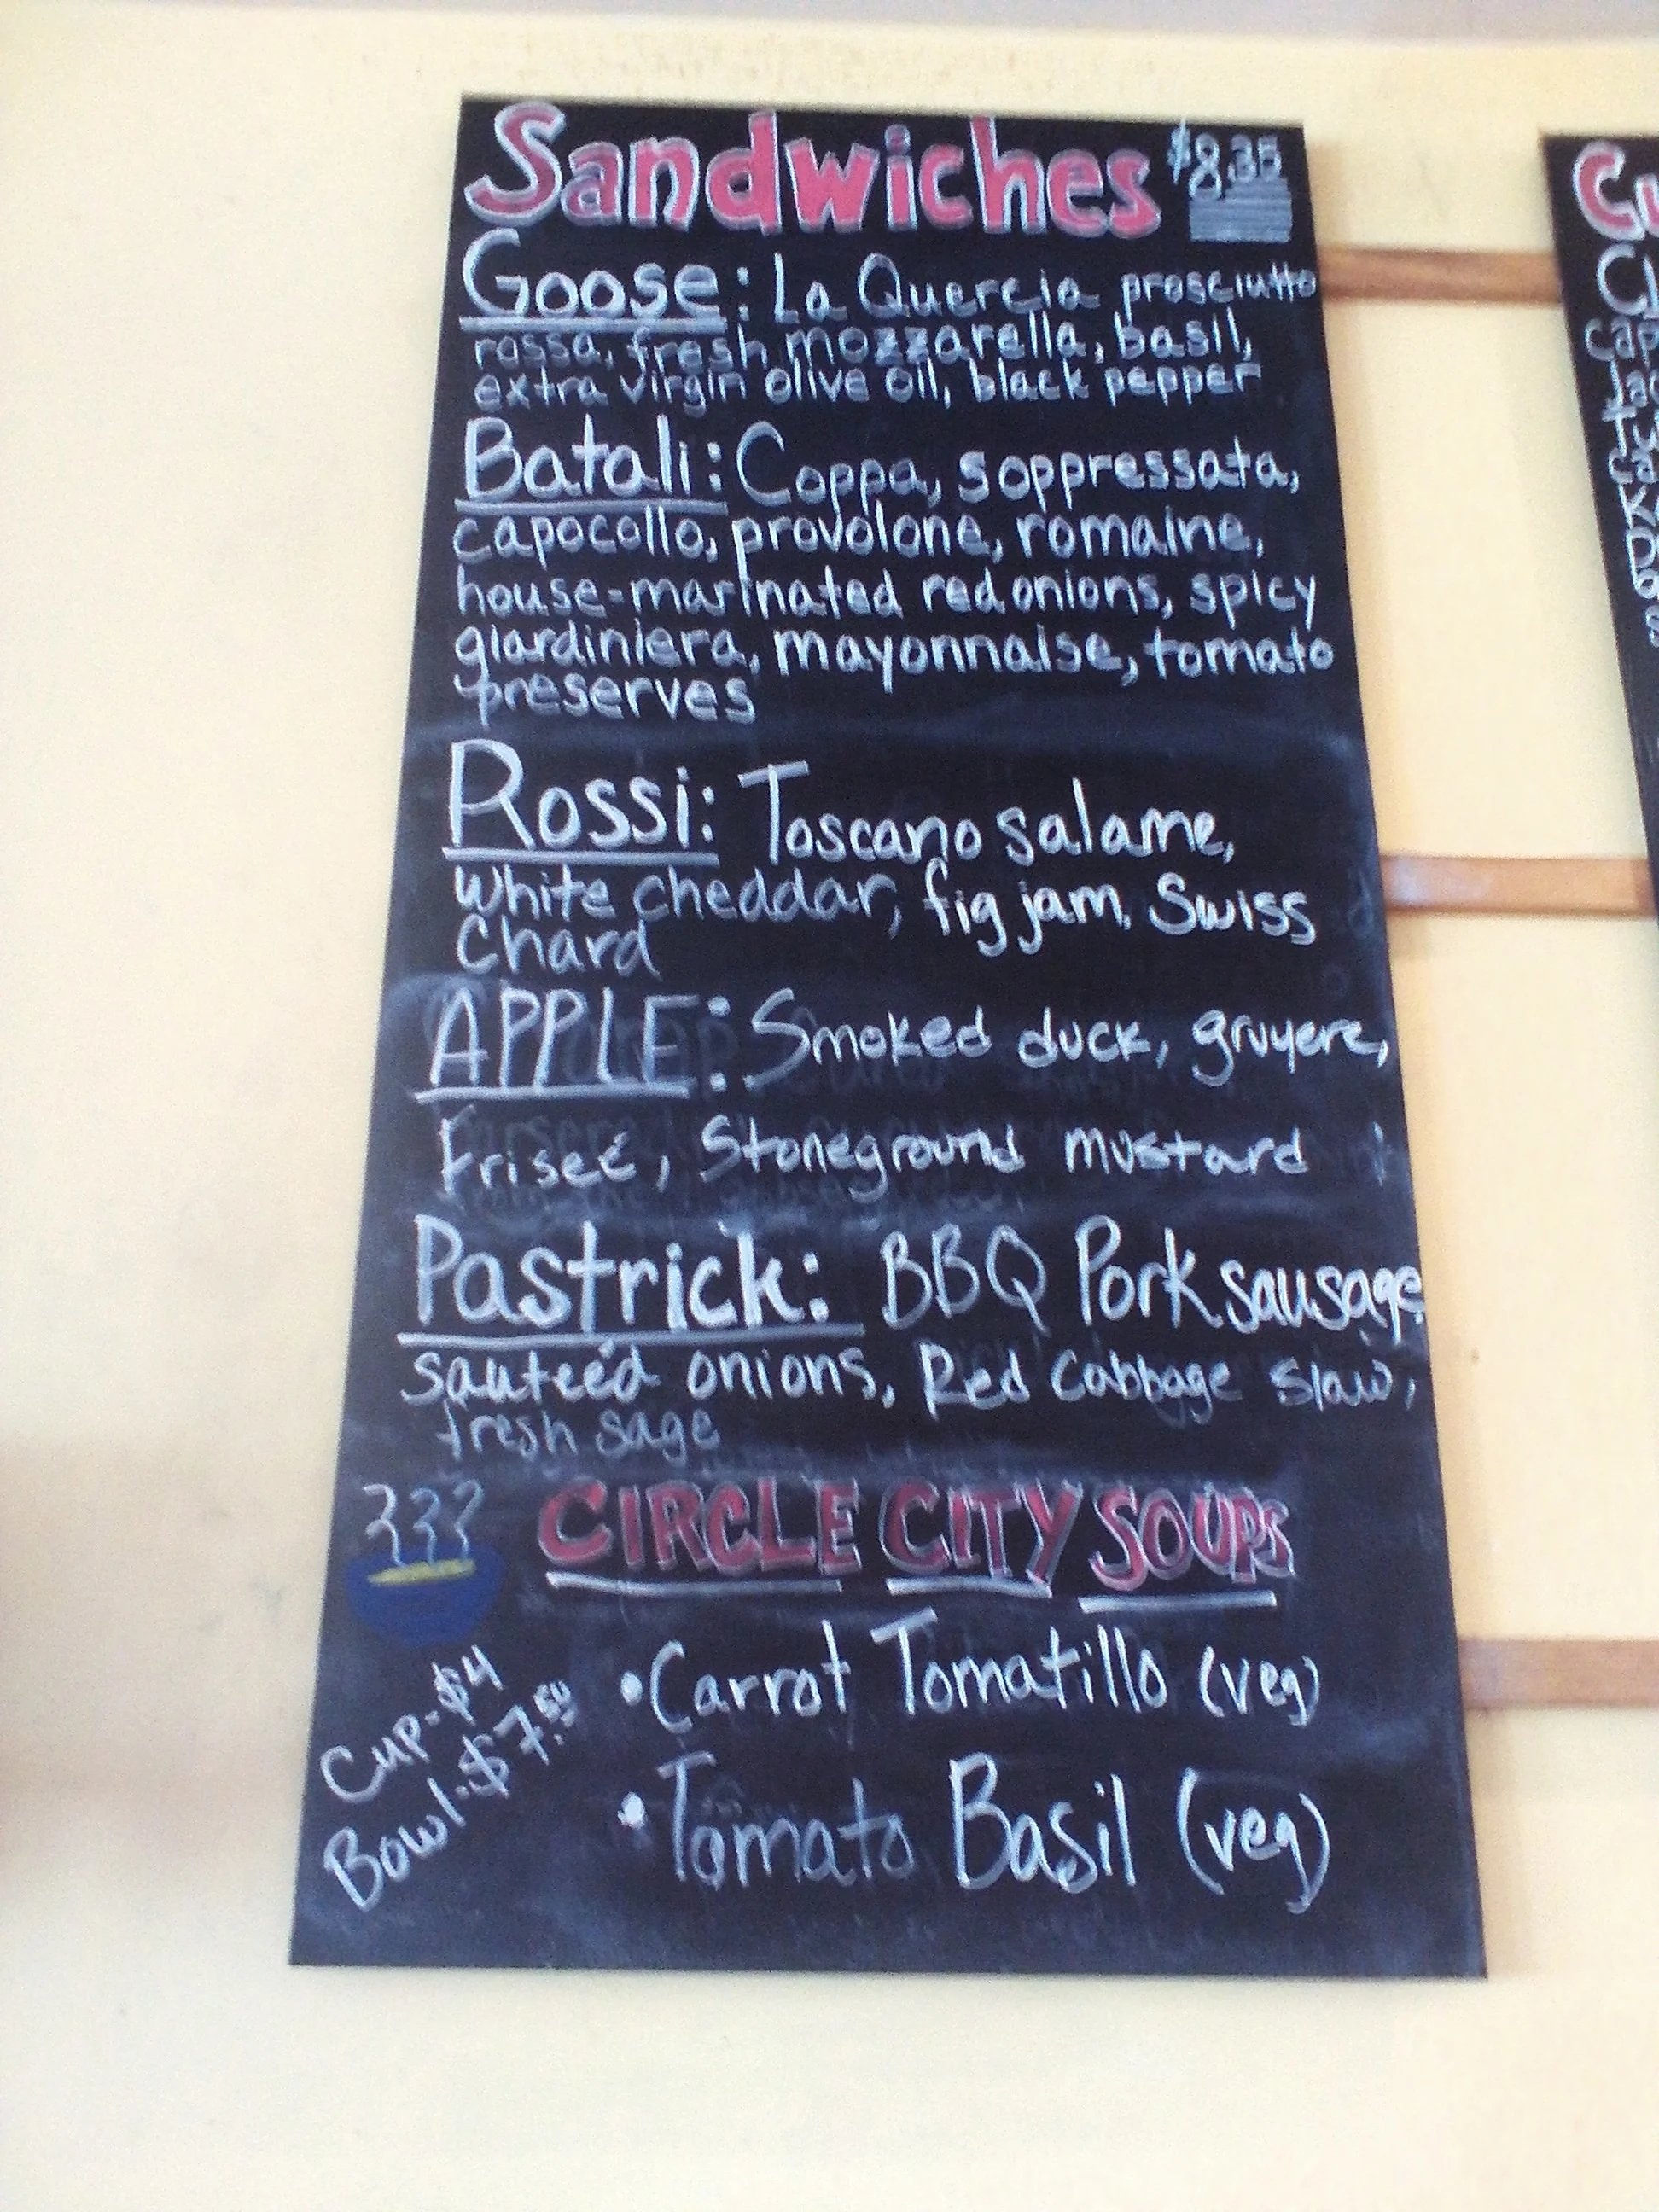 Sandwiches $8.35
Goose: La Quercia prosciutto
rossa, fresh mozzarella, basil,
extra virgin olive oil, black pepper
Batali: Coppa, soppressata,
capocollo, provolone, romaine,
house-marinated red onions, spicy
giardiniera, mayonnaise, tomato
preserves
Rossi: Toscano salame,
White cheddar, fig jam, Swiss
Chard
APPLE: Smoked duck, gruyere,
Friseé, Stoneground mustard
Pastrick: BBQ Pork sausage
sauteéd onions, Red Cabbage Slaw,
fresh sage
CIRCLE CITY SOUPS
Cup-$4
Bowl-$7.50
•Carrot Tomatillo (veg)
•Tomato Basil (veg)